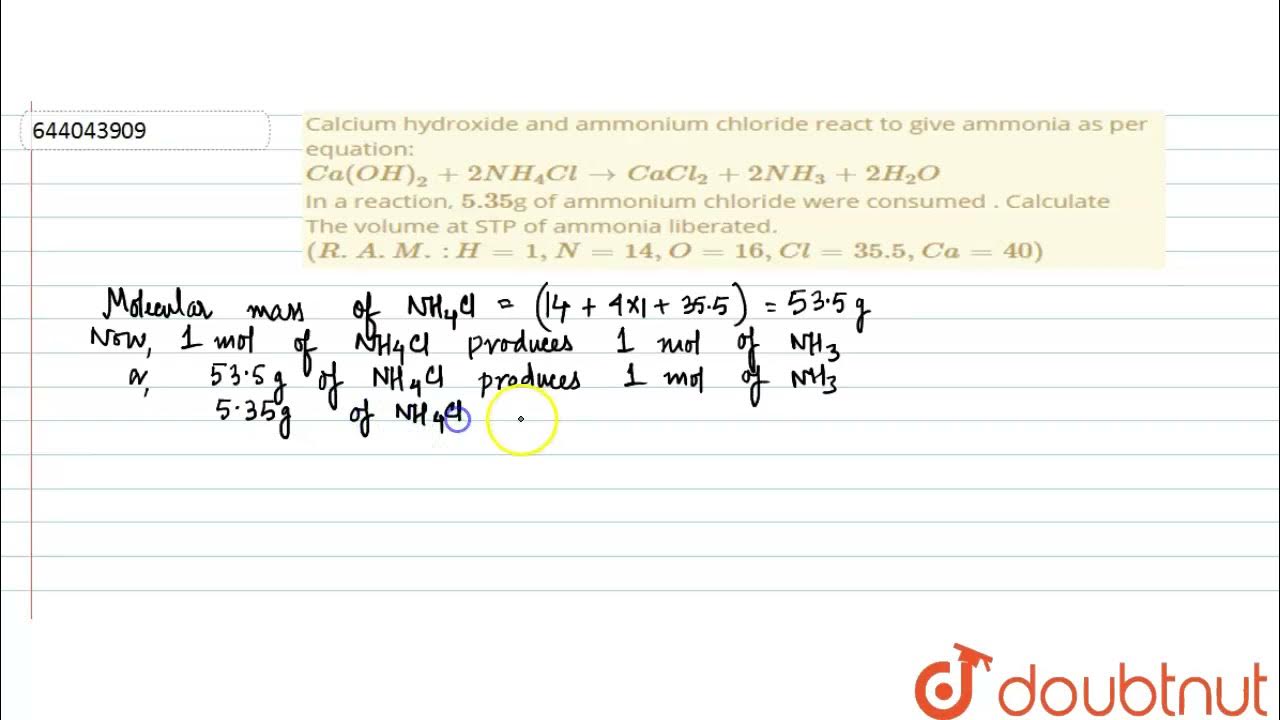 644043909
Calcium hydroxide and ammonium chloride react to give ammonia as per
equation:
Ca(OH)₂ + 2NH₄Cl → CaCl₂ + 2NH₃ + 2H₂O
In a reaction, 5.35g of ammonium chloride were consumed . Calculate
The volume at STP of ammonia liberated.
(R. A. M. : H = 1, N = 14, O = 16, Cl = 35.5, Ca = 40)
Molecular mass of NH₄Cl = (14 + 4×1 + 35.5) = 53.5 g
Now, 1 mol of NH₄Cl produces 1 mol of NH₃
or, 53.5 g of NH₄Cl produces 1 mol of NH₃
5.35g of NH₄Cl
doubtnut